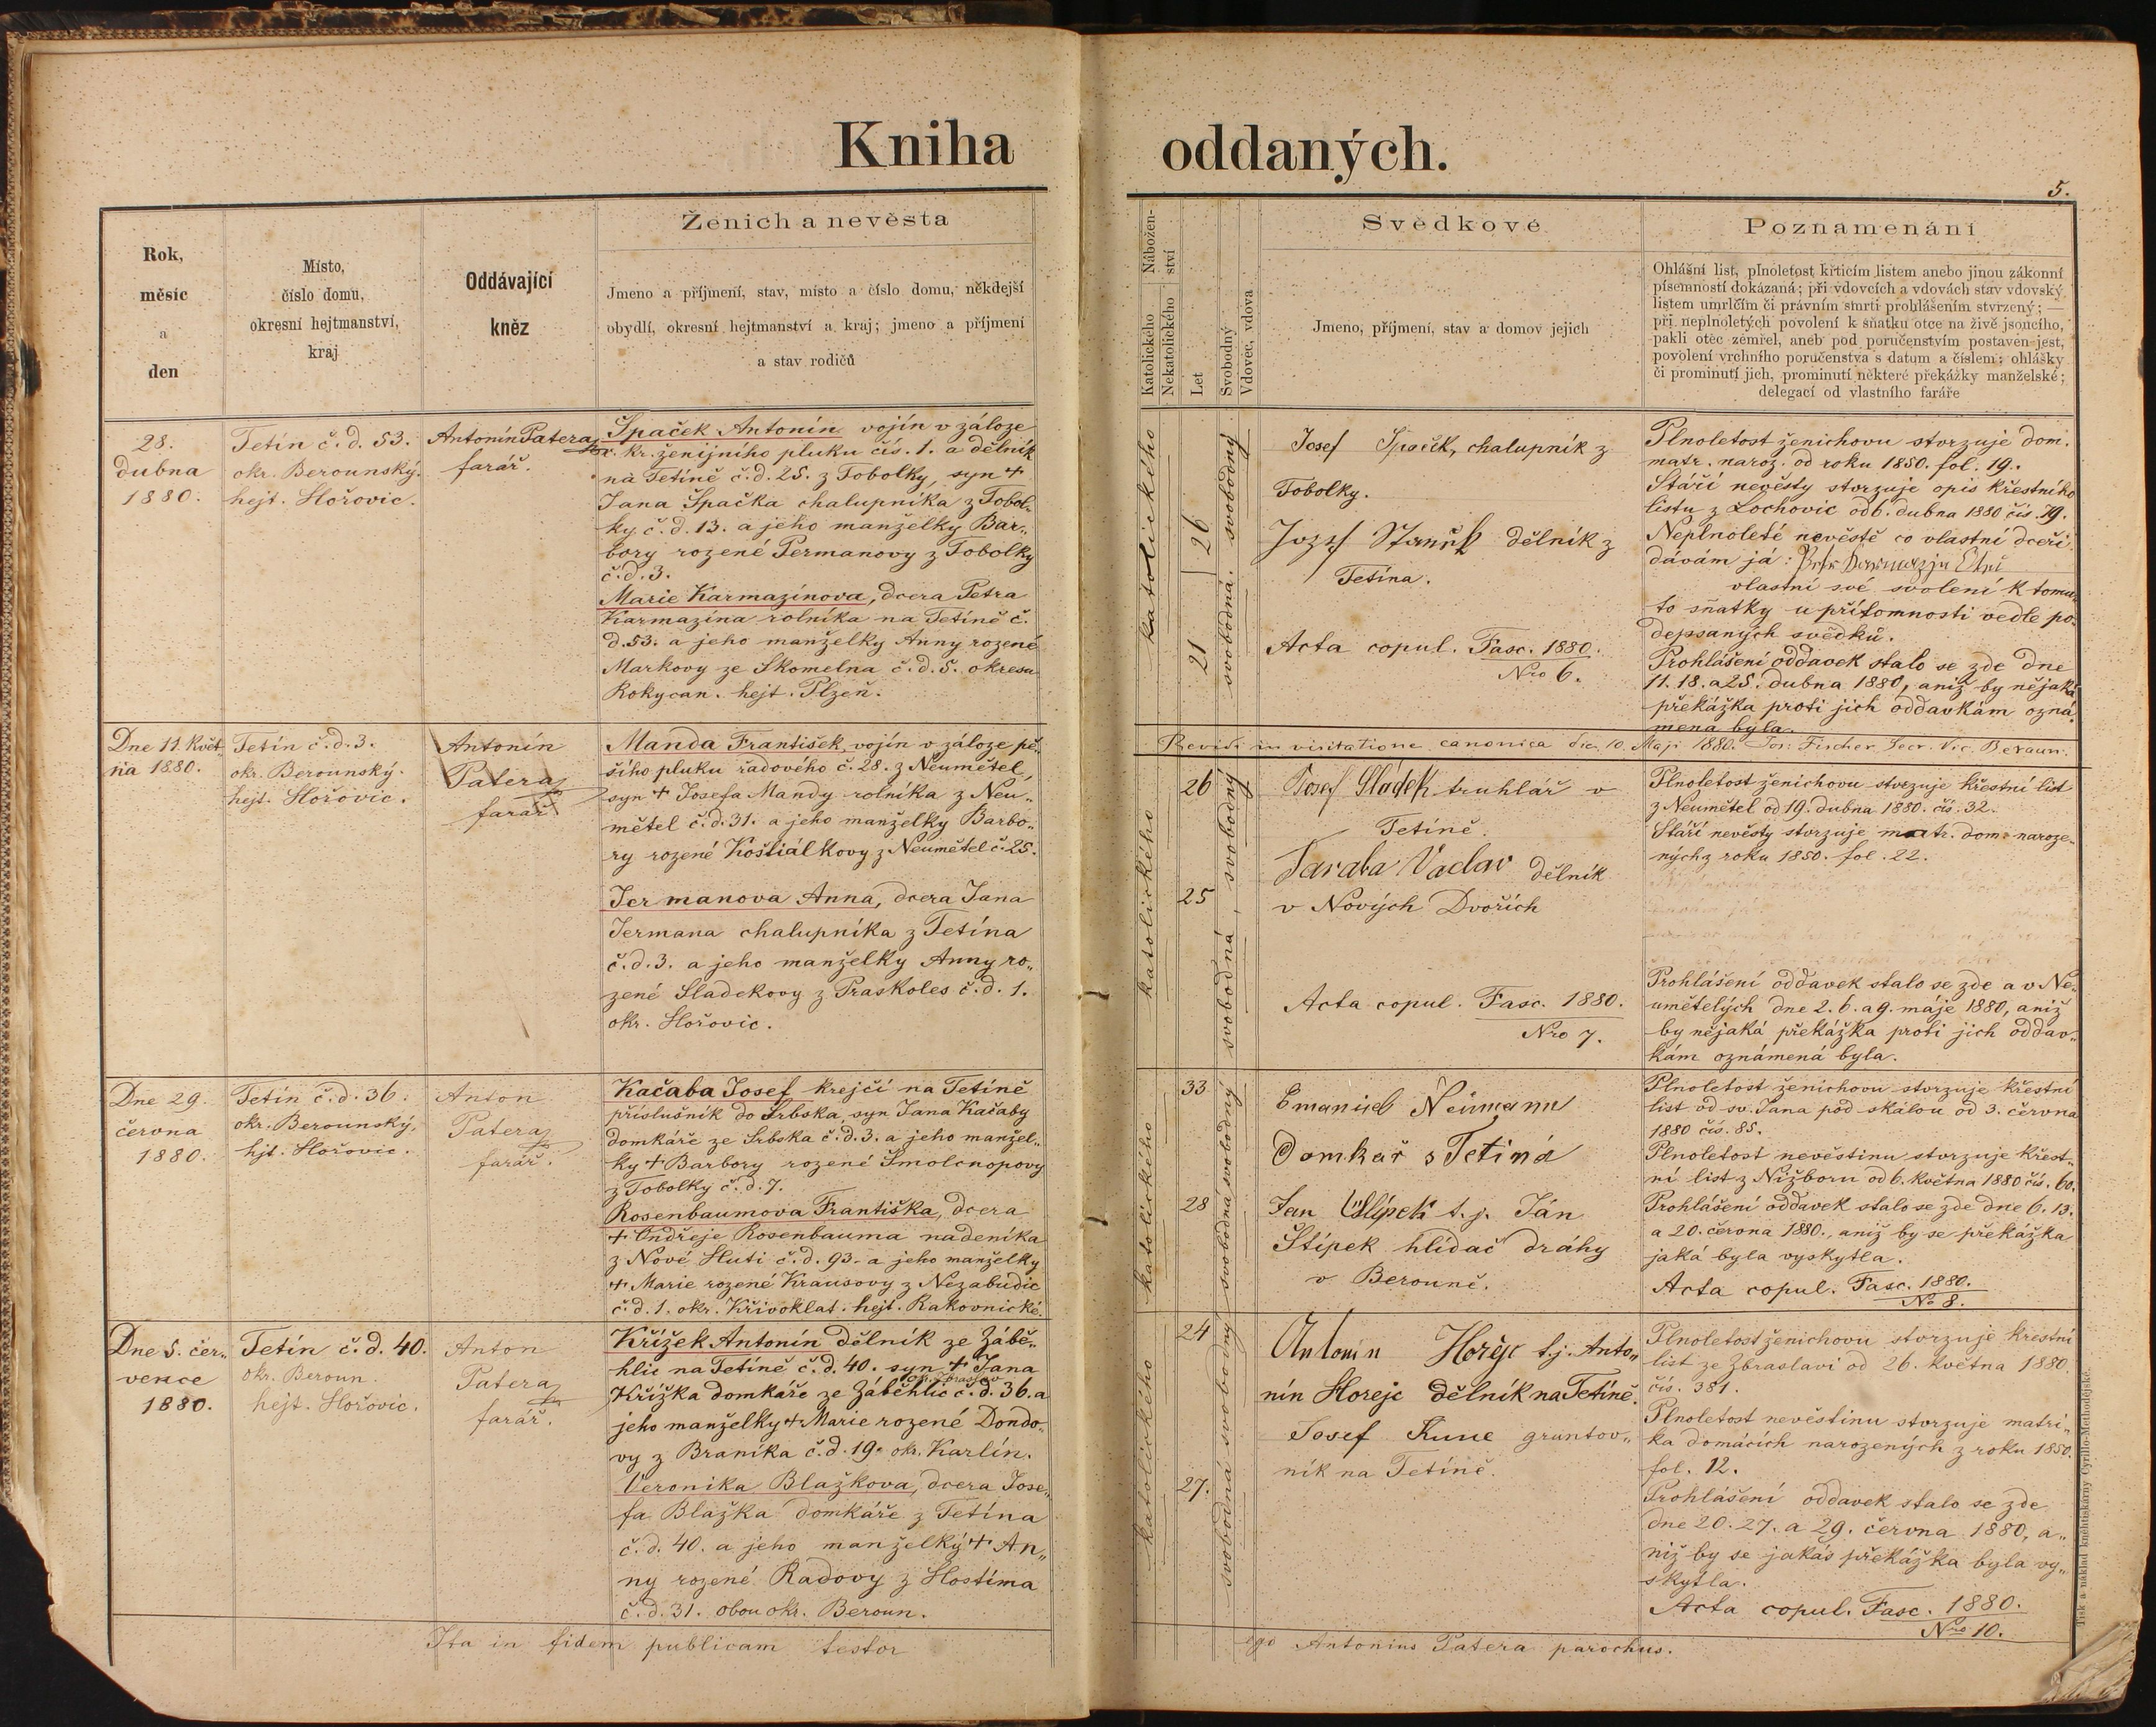 Kniha oddaných.
5.
Rok,
měsíc
a
den
Místo,
číslo domu,
okresní hejtmanství,
kraj
Oddávající
kněz
Ženich a nevěsta
Jmeno a příjmení, stav, místo a číslo domu, někdejší
obydlí, okresní hejtmanství a kraj; jmeno a příjmení
a stav rodičů
Nábožen-
ství
Katolického
Nekatolického
Let
Svobodný
Vdovec, vdova
Svědkové
Jmeno, příjmení, stav a domov jejich
Poznamenání
Ohlášní list, plnoletost křticím listem anebo jinou zákonní
písemností dokázaná; při vdovcích a vdovách stav vdovský
listem umrlčím či právním smrti prohlášením stvrzený; —
při neplnoletých povolení k sňatku otce na živě jsoucího,
pakli otec zemřel, aneb pod poručenstvím postaven jest,
povolení vrchního poručenstva s datum a číslem; ohlášky
či prominutí jich, prominutí některé překážky manželské;
delegací od vlastního faráře
28.
dubna
1880.
Tetín č. d. 53.
okr. Berounský.
hejt. Hořovic.
Antonín Patera
farář.
Špaček Antonín vojín v záloze
kr. ženijního pluku čís. 1. a dělník
na Tetíně č. d. 25. z Tobolky, syn +
Jana Špačka chalupníka z Tobol-
ky č. d. 13. a jeho manželky Bar-
bory rozené Permanovy z Tobolky
č. d. 3.
Marie Karmazínova, dcera Petra
Karmazína rolníka na Tetíně č.
d. 53. a jeho manželky Anny rozené
Markovy ze Skomelna č. d. 5. okresu
Rokycan. hejt. Plzeň.
katolického
26
21
svobodná. svobodný
Josef Špaček, chalupník z
Tobolky.
Jozef Staněk dělník z
Tetína.
Acta copul. Fasc. 1880.
Nro 6.
Plnoletost ženichovu stvrzuje dom.
matr. naroz. od roku 1850. fol. 19.
Stáří nevěsty stvrzuje opis křestního
listu z Lochovic od 6. dubna 1880 čís. 19.
Neplnoleté nevěstě co vlastní dceři
dávám já:
vlastní své svolení k tomu-
to sňatky u přítomnosti vedle po-
depsaných svědků.
Prohlášení oddavek stalo se zde dne
11. 18. a 25. dubna 1880, aniž by nějaká
překážka proti jich oddavkám ozná-
mena byla.
Revidi in visitatione canonica die 10. Maji 1880. Jos. Fischer Secr. Vic. Beraun.
Dne 11. Květ-
na 1880.
Tetín č. d. 3.
okr. Berounský.
hejt. Hořovic.
Antonín
Patera
farář
Manda František, vojín v záloze pě-
šího pluku řadového č. 28. z Neumětel,
syn + Josefa Mandy rolníka z Neu-
mětel č. d. 31. a jeho manželky Barbo-
ry rozené Košťiálkovy z Neumětel č. 25.
Jermanova Anna, dcera Jana
Jermana chalupníka z Tetína
č. d. 3. a jeho manželky Anny ro-
zené Sladekovy z Praskoles č. d. 1.
okr. Hořovic.
katolického
26
25
svobodná, svobodný
Josef Sládek truhlář v
Tetíně.
Taraba Vaclav dělník
v Nových Dvořích
Acta copul. Fasc. 1880.
Nro 7.
Plnoletost ženichovu stvrzuje křestní list
z Neumětel od 19. dubna 1880. čís. 32.
Stáří nevěsty stvrzuje matr. dom. naroze-
ných z roku 1850. fol. 22.
Prohlášení oddavek stalo se zde a v Ne-
umětelých dne 2. 6. a 9. máje 1880, aniž
by nějaká překážka proti jich oddav-
kám oznámená byla.
Dne 29.
června
1880.
Tetín č. d. 36.
okr. Berounský.
hjt. Hořovic.
Anton
Patera
farář.
Kačaba Josef krejčí na Tetíně
příslušník do Srbska, syn Jana Kačaby
domkáře ze Srbska č. d. 3. a jeho manžel-
ky + Barbory rozené Šmolcnopovy
z Tobolky č. d. 7.
Rosenbaumova Františka, dcera
+ Ondřeje Rosenbauma nadeníka
z Nové Huti č. d. 93. a jeho manželky
+ Marie rozené Krausovy z Nezabudic
č. d. 1. okr. Křivoklat. hejt. Rakovnické.
katolického
33
28
svobodná svobodný
Emanuel Neumann
Domkař s Tetina
Jan Štípek t. j. Ján
Štípek hlídač dráhy
v Berouně.
Plnoletost ženichovu stvrzuje křestní
list od sv. Jana pod skálou od 3. června
1880 čís. 85.
Plnoletost nevěstinu stvrzuje křest-
ní list z Nižboru od 6. května 1880 čís. 60.
Prohlášení oddavek stalo se zde dne 6. 13.
a 20. června 1880., aniž by se překážka
jaká byla vyskytla.
Acta copul. Fasc. 1880.
No 8.
Dne 5. čer-
vence
1880.
Tetín č. d. 40.
okr. Beroun.
hejt. Hořovic.
Anton
Patera
farář.
Křížek Antonín dělník ze Zábě-
hlic na Tetíně č. d. 40. syn + Jana
okr. Zbraslav
Křížka domkáře ze Záběhlic č. d. 36. a
jeho manželky + Marie rozené Dondo-
vy z Braníka č. d. 19. okr. Karlín.
Veronika Blažkova, dcera Jose-
fa Blažka domkáře z Tetína
č. d. 40. a jeho manželky + An-
ny rozené Radovy z Hostíma
č. d. 31. obou okr. Beroun.
katolického
24
27.
svobodná svobodný
Antonín Hořejc t. j. Anto-
nín Horejc dělník na Tetíně.
Josef Kune gruntov-
ník na Tetíně.
Plnoletost ženichovu stvrzuje křestní
list ze Zbraslavi od 26. května 1880.
čís. 381.
Plnoletost nevěstinu stvrzuje matri-
ka domácích narozených z roku 1850.
fol. 12.
Prohlášení oddavek stalo se zde
dne 20. 27. a 29. června 1880, a-
niž by se jakás překážka byla vy-
skytla.
Acta copul. Fasc. 1880.
Nro 10.
Ita in fidem publicam testor ego Antonius Patera parochus.
Tisk a náklad knihtiskárny Cyrillo-Methodějské.